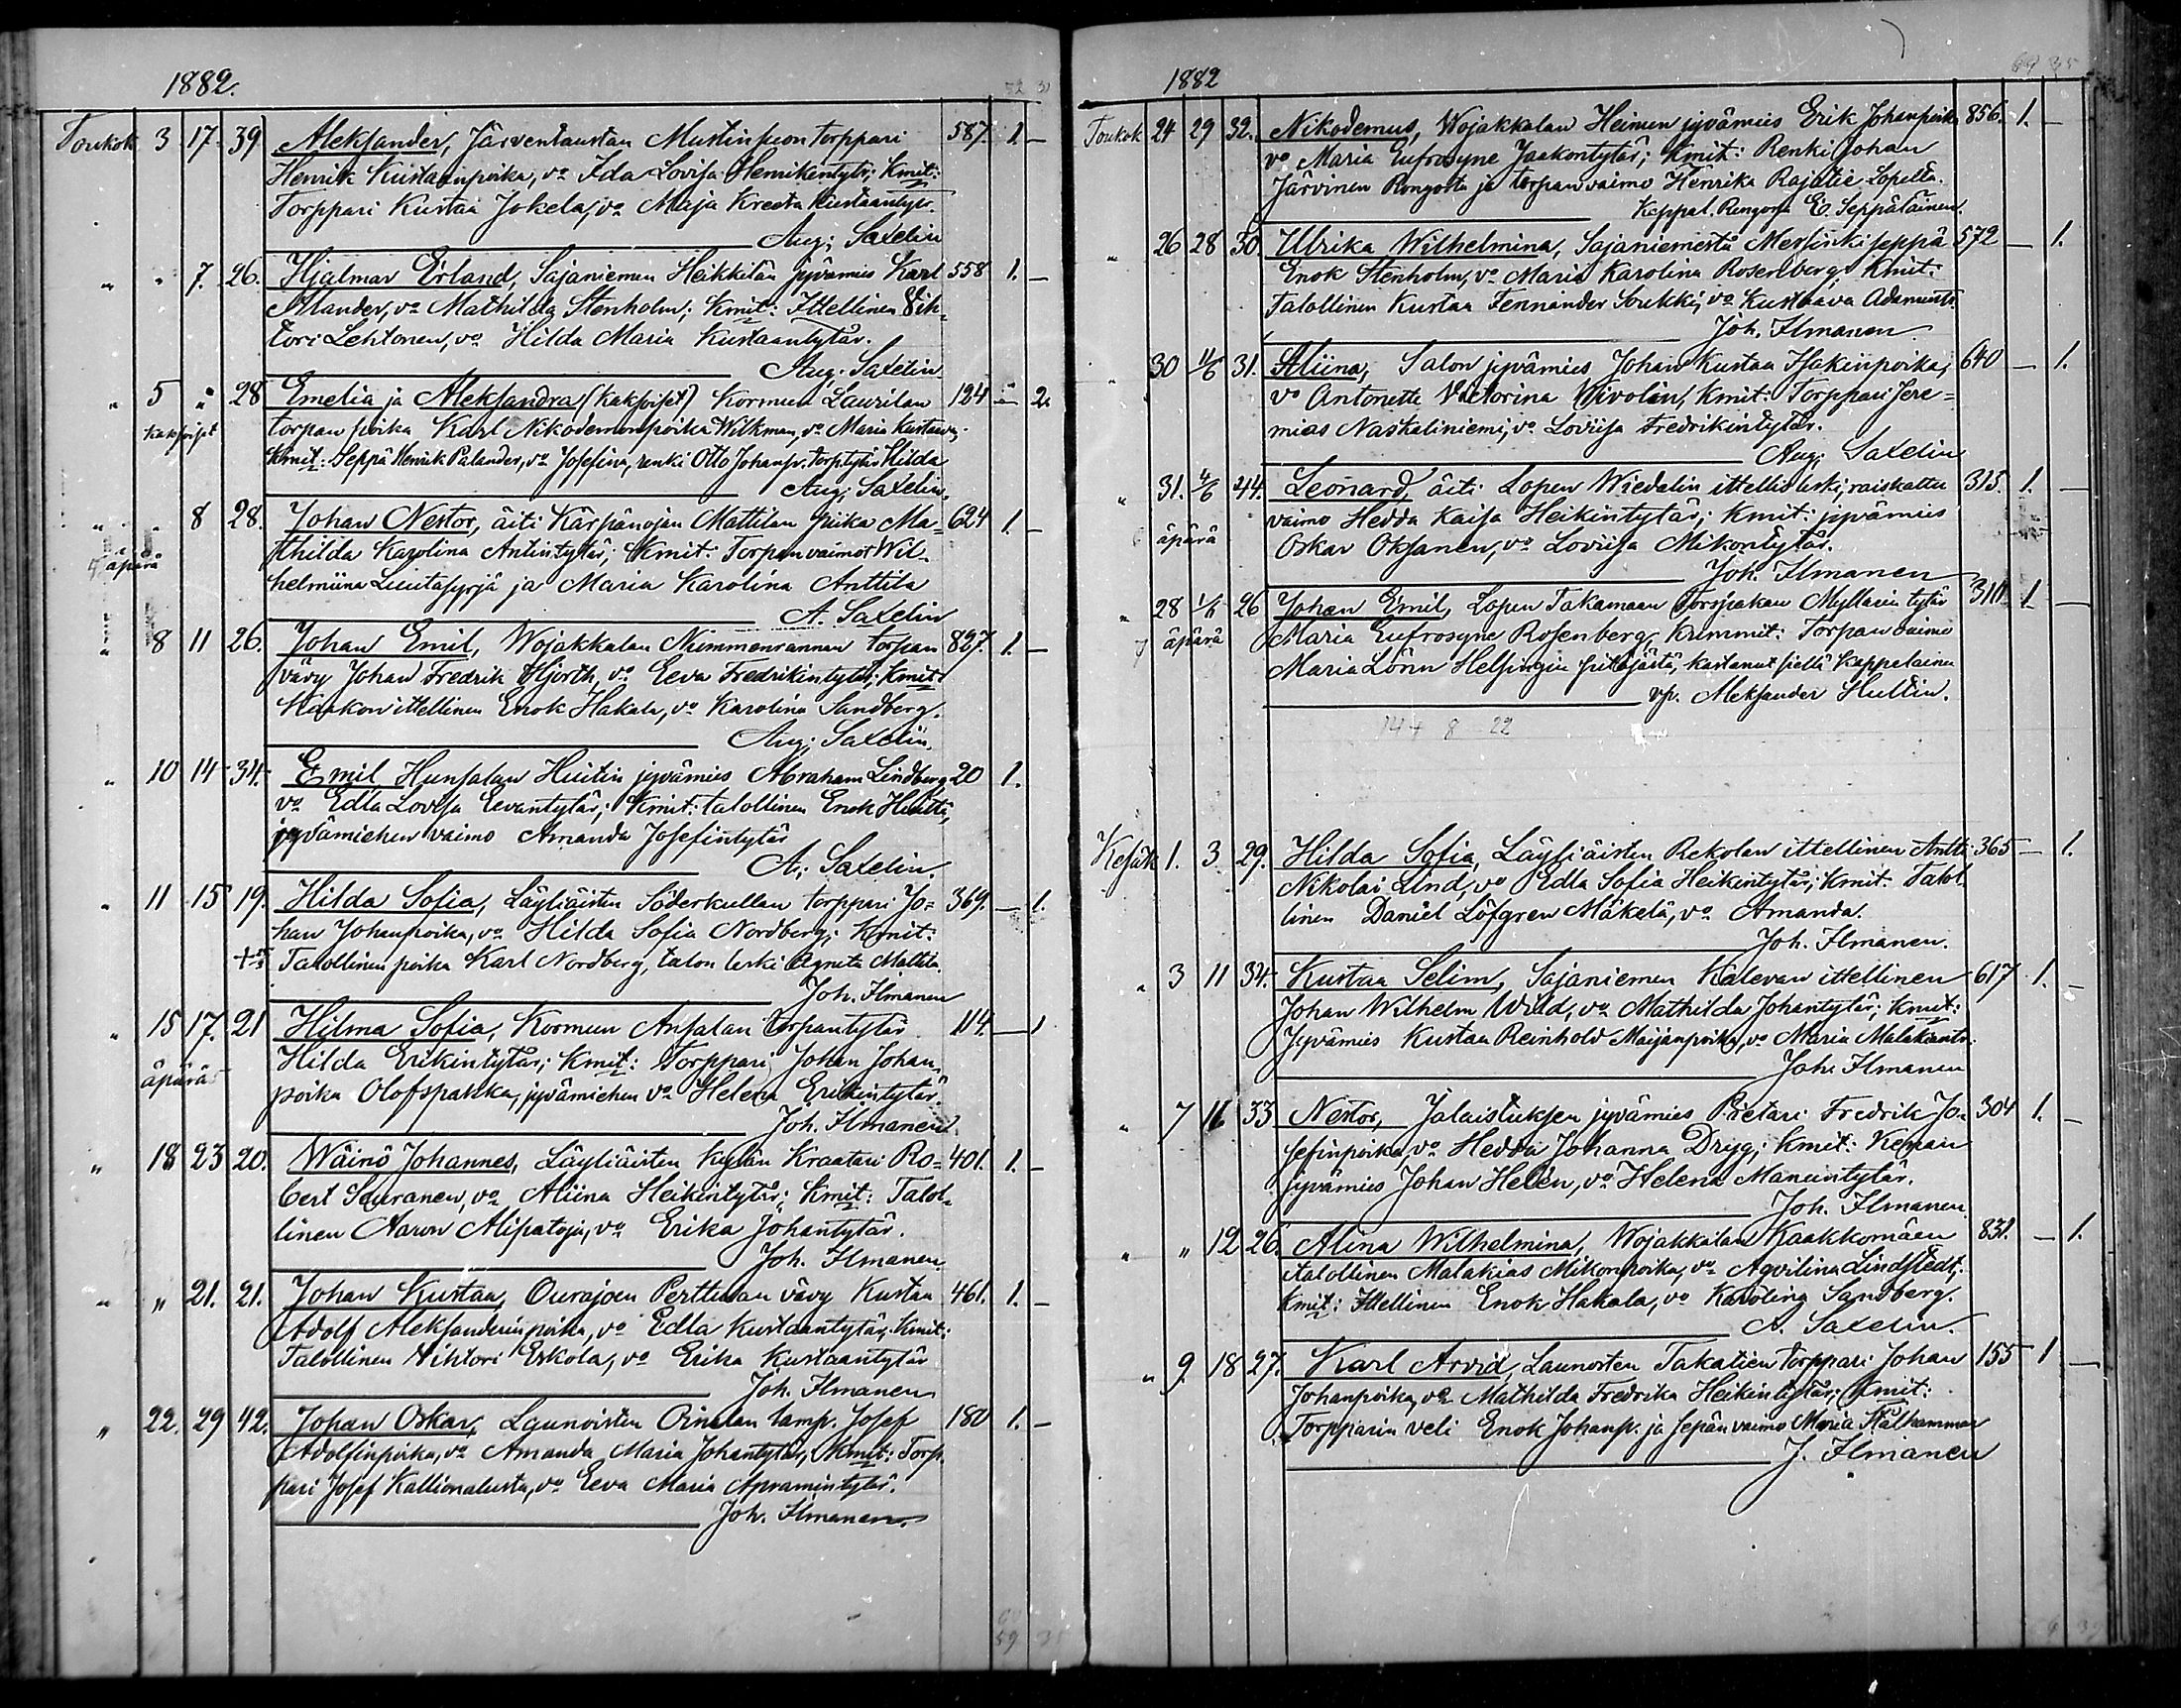 1882.
Toukok 3 17. 39 Aleksander, Järventaustan Mustinsuon torppari 587. 1. —
Henrik Kustaanpoika, vo Ida Lovisa Henrikintytr; Kmit:
Torppari Kustaa Jokela, vo Maja Kreeta Kustaantytr.
Aug; Saxelin
" " 7. 26. Hjalmar Erland, Sajaniemen Heikkilän jyvämies Karl 558 1. —
vo Mathilda Stenholm; Kmit: Ittellinen Vih-
tori Lehtonen, vo Hilda Maria Kustaantytär.
Aug. Saxelin
" 5 " 28 Emelia ja Aleksandra (kaksoiset) Kormun Laurilan 124 — 2.
kaksoiset torpan poika Karl Nikodemonpoika Wilkman, vo Maria Kustaava.
Kmit: Seppä Henrik Palander, vo Josefina, renki Otto Johanp. torp.tytär Hilda
Aug; Saxelin.
" 8 28. Johan Nestor, äiti Kärpänojan Mattilan piika Ma- 624 1. —
äpärä thilda Karolina Antintytär; Kmit: Torpanvaimot Wil-
helmiina ja Maria Karolina Anttila
A. Saxelin
" 8 11 26. Johan Emil, Wojakkalan Nummenrannan torpan 827. 1. —
vävy Johan Fredrik Hjorth, vo Eeva Fredrikintytär; Kmit
ittellinen Enok Hakala, vo Karolina Sandberg.
Aug; Saxelin.
" 10 14 34. Emil Hunsalan Huitin jyvämies Abraham Lindberg 20 1.
vo Edla Lovisa Eevantytär; Kmit: talollinen Enok Huitti,
jyvämiehen vaimo Amanda Josefintytär
A; Saxelin.
" 11 15 19. Hilda Sofia, Läyliäisten Söderkullan torppari Jo- 369. — 1.
han Johanpoika, vo Hilda Sofia Nordberg; Kmit:
Talollinen poika Karl Nordberg, talon leski Agneta Mattila.
Joh. Ilmanen
" 15 17. 21 Hilma Sofia, Kormun Ansalan torpantytär 114. — 1
Hilda Erikintytär; Kmit: Torppari Johan Johan-
äpärä poika Olofspakka, jyvämiehen vo Helena Erikintytär.
Joh. Ilmanen.
" 18 23 20. Wäinö Johannes, Läyliäisten kylän Kraatari Ro- 401. 1. —
bert Sauranen, vo Aliina Heikintytär; Kmit: Talol-
linen Aaron Alipatoja, vo Erika Johantytär.
Joh. Ilmanen.
" " 21. 21. Johan Kustaa, Ourajoen Perttulan vävy Kustaa 461. 1. —
Adolf Aleksanderinpoika, vo Edla Kustaantytär; Kmit:
Talollinen Vihtori Eskola, vo Erika Kustaantytär
Joh. Ilmanen
" 22. 29 42. Johan Oskar, Launoisten Oinalan lamp. Josef 180 1. —
Adolfinpoika, vo Amanda Maria Johantytär; Kmit: Torp-
pari Josef Kallionalusta, vo Eeva Maria Apramintytär.
Joh. Ilmanen.
59
1882
Toukok 24 29 32. Nikodemus, Wojakkalan Heimen jyvämies Erik Johanpoika 856. 1. —
vo Maria Eufrosyne Jaakontytär; Kmit: Renki Johan
Järvinen Rengosta ja torpanvaimo Henrika Rajatie Lopelta.
Kappal. Rengossa E. Seppäläinen.
" 26 28 30. Ulrika Wilhelmina, Sajaniemestä Messinkiseppä 572 — 1.
Enok Stenholm, vo Maria Karolina Rosenberg; Kmit:
Talollinen Kustaa Fennander Soukki, vo Kustaava Adamintr.
Joh. Ilmanen
" 30 11/6 31. Aliina, Salon jyvämies Johan Kustaa Isakinpoika, 640 — 1.
vo Antonette Victorina Wivolin, Kmit: Torppari Jere-
mias Naskaliniemi, vo Loviisa Fredrikintytär.
Aug; Saxelin
" 31. 4/6 44. Leonard, äiti Lopen Wiedalin ittellis leski, raiskattu 315. 1. —
äpärä vaimo Hedda Kaisa Heikintytär; Kmit: jyvämies
Oskar Oksanen, vo Loviisa Mikontytär.
Joh. Ilmanen
" 28 1/6 26 Johan Emil, Lopen Takamaan Torspakan Myllärin tytär 310. 1 —
äpärä Maria Eufrosyne Rosenberg, Kummit: Torpan vaimo
Maria Lönn Helsingin pitäjästä, kastanut siellä Kappalainen
vp. Aleksander Hullin.
14 + 8 22
Kesäk 1. 3 29. Hilda Sofia, Läyliäisten Rekolan ittellinen Antti 365 — 1.
Nikolai Lind, vo Edla Sofia Heikintytär; Kmit. Talol-
linen Daniel Löfgren Mäkelä, vo Amanda.
Joh. Ilmanen.
" 3 11 34. Kustaa Selim, Sajaniemen Kalevan ittellinen 617 1. —
Johan Wilhelm Wild, vo Mathilda Johantytär; Kmit:
Jyvämies Kustaa Reinhold Maijanpoika, vo Maria Malakiantr.
Joh. Ilmanen
" 7 11 33 Nestor, Jalaistuksen jyvämies Pietari Fredrik Jo- 304 1. —
sefinpoika, vo Hedda Johanna Dryg; Kmit: Kepsan
jyvämies Johan Helén, vo Helena Manuintytär.
Joh. Ilmanen.
" " 12 26. Alina Wilhelmina, Wojakkalan Kaakkomäen 831. — 1.
italollinen Malakias Mikonpoika, vo Agvilina Lindstedt;
Kmit: Ittellinen Enok Hakala, vo Karolina Sandberg.
A. Saxelin.
" 9. 18 27. Karl Arvid, Launoisten Takatien torppari Johan 155 1 —
Johanpoika, vo Mathilda Fredrika Heikintytär; Kmit:
Torpparin veli Enok Johanp. ja sepän vaimo Maria Stålhammar
J. Ilmanen